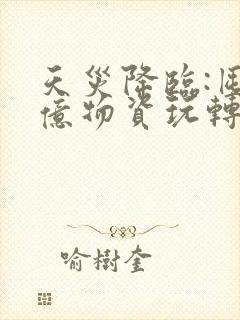 天災降臨:囤
億物資玩轉
喻樹奎